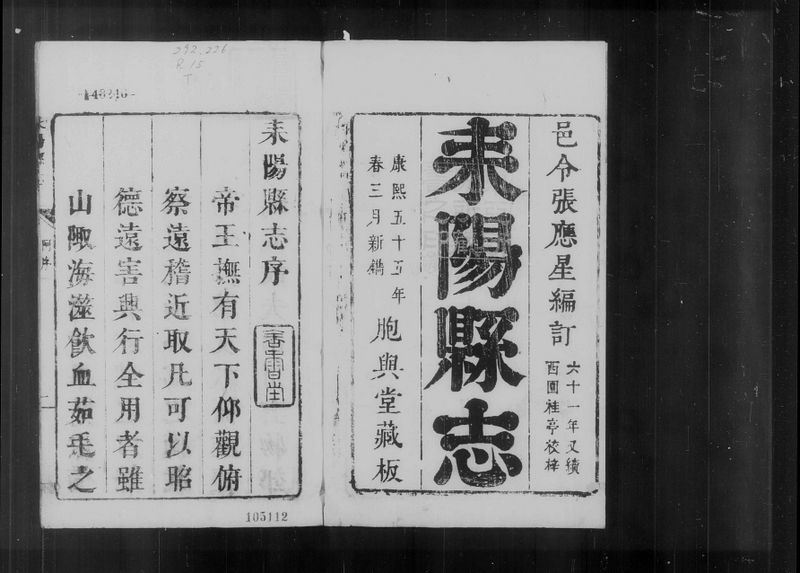 邑令張應星編訂
六十一年又續
西園桂亭校梓
耒陽縣志
康熙五十五年
春三月新鐫
胞與堂藏板
292.226
R.15
T
148246
耒陽縣志序
帝王撫有天下仰觀俯
察遠稽近取凡可以昭
德遠害興行全用者雖
山陬海澨飲血茹毛之
105112